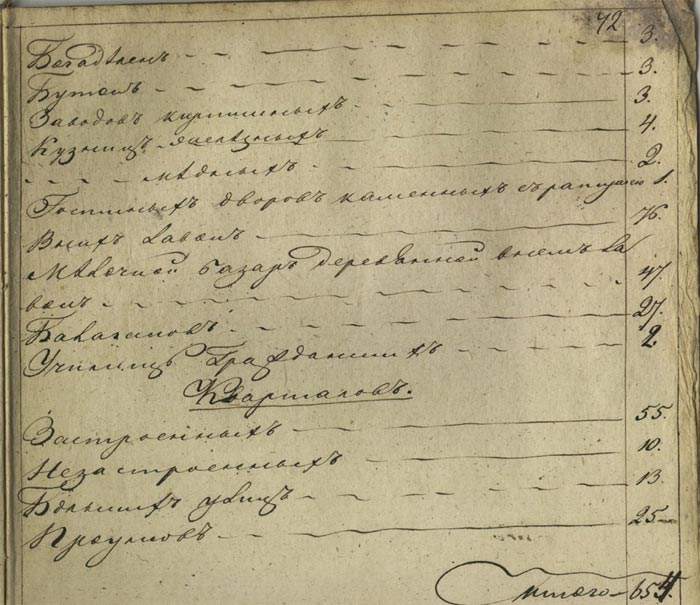 72
Богадѣленъ 3.
Бутокъ 3.
Заводовъ кирпичныхъ 3.
Кузницъ 4.
мѣдныхъ 2.
Гостиныхъ дворовъ каменныхъ съ ратушею 1.
Внихъ лавокъ 76.
Мѣлочной базаръ деревянной внемъ ла
вокъ 47.
Балагановъ 27.
Училищъ Гражданскихъ 2.
Кварталовъ.
Застроенныхъ 55.
Незастроенныхъ 10.
Большихъ улицъ 13.
Проулковъ 25
итого 654.